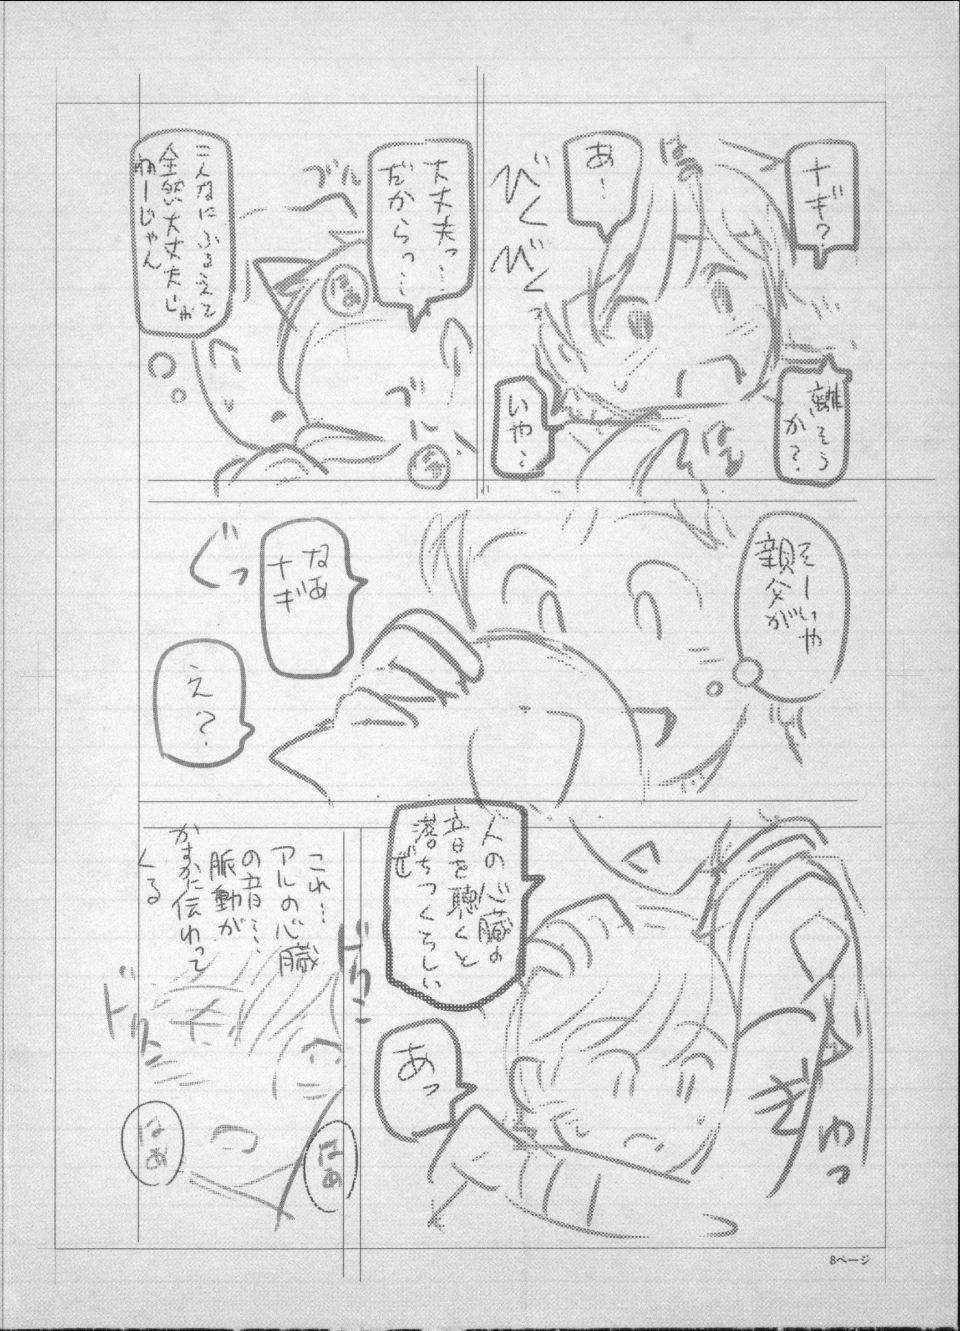 ナギ?
はぁ
あ…
びくびく
離そう
か?
いや…
はぁ
大丈夫っ…
だからっ…
ブル
はぁ
ブル
はぁ
こんなにふるえて
全然大丈夫じゃ
ねーじゃん
そーいや
親父が
なあ
ナギ
ぐっ
え?
人の心臓の
音を聴くと
落ちつくらしい
ぜ
あっ
ぎゅっ
これ…
アルの心臓
の音…
脈動が
かすかに伝わって
くる
ドクン
ドクン
はぁ
はぁ
8ページ